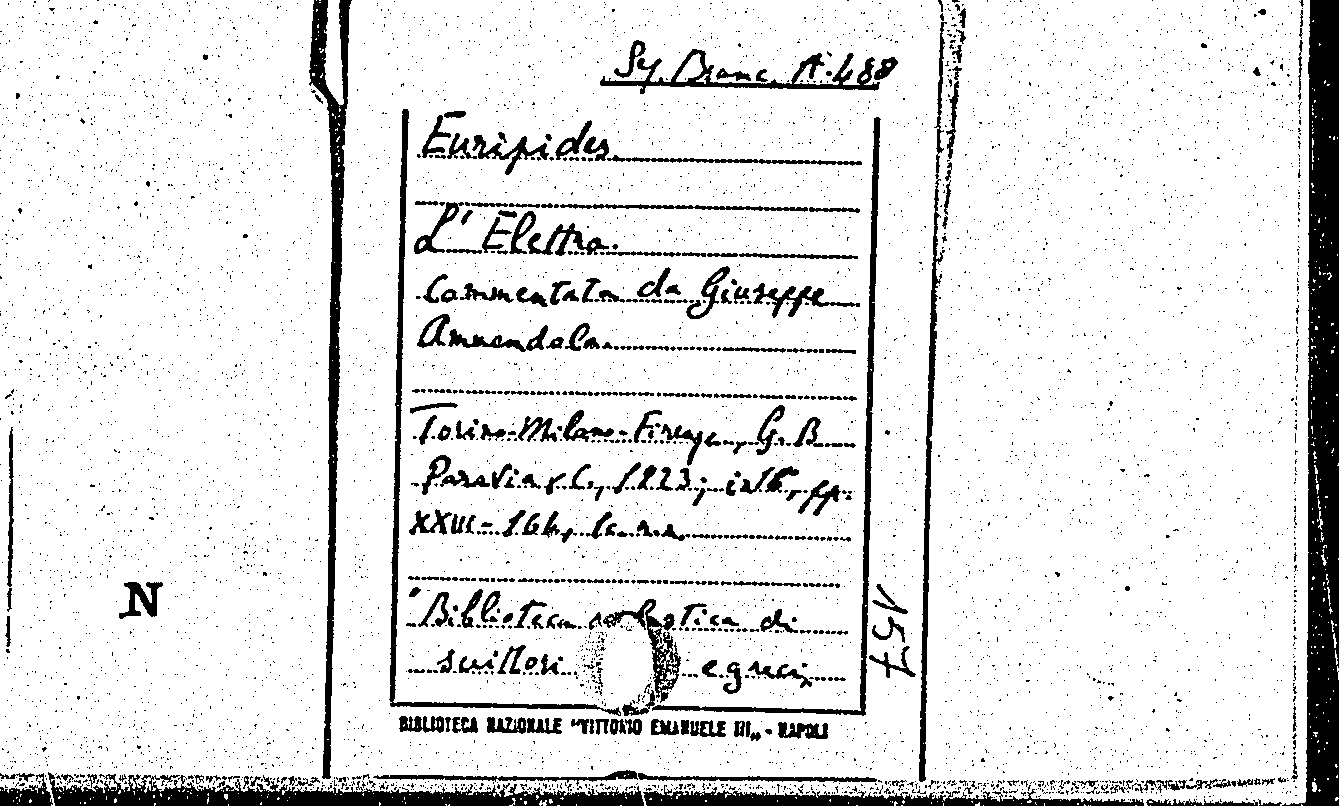 Sy. Branc. A. 488
Euripides.
L' Elettra.
Commentata da Giuseppe
Ammendola.
Torino-Milano-Firenze, G. B.
Paravia e C., 1923; in 16°, pp.
XXVII-164,
"Biblioteca di
scrittori e greci,
157
N
BIBLIOTECA NAZIONALE "VITTORIO EMANUELE III„ - NAPOLI